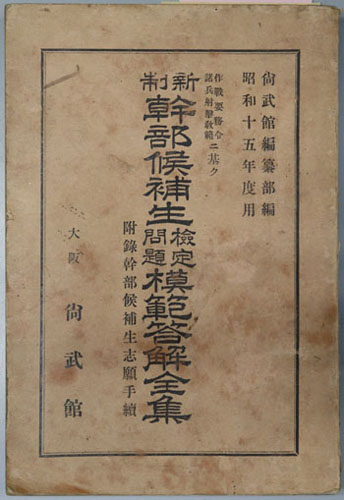 尙武館編纂部編
昭和十五年度用
作戰要務令
諸兵射擊敎範
ニ基ク
新制
幹部候補生
檢定問題
模範答解全集
附錄幹部候補生志願手續
大阪 尙武館